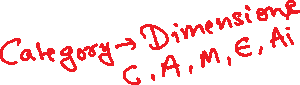 Category → Dimensions
C, A, M, E, Ai